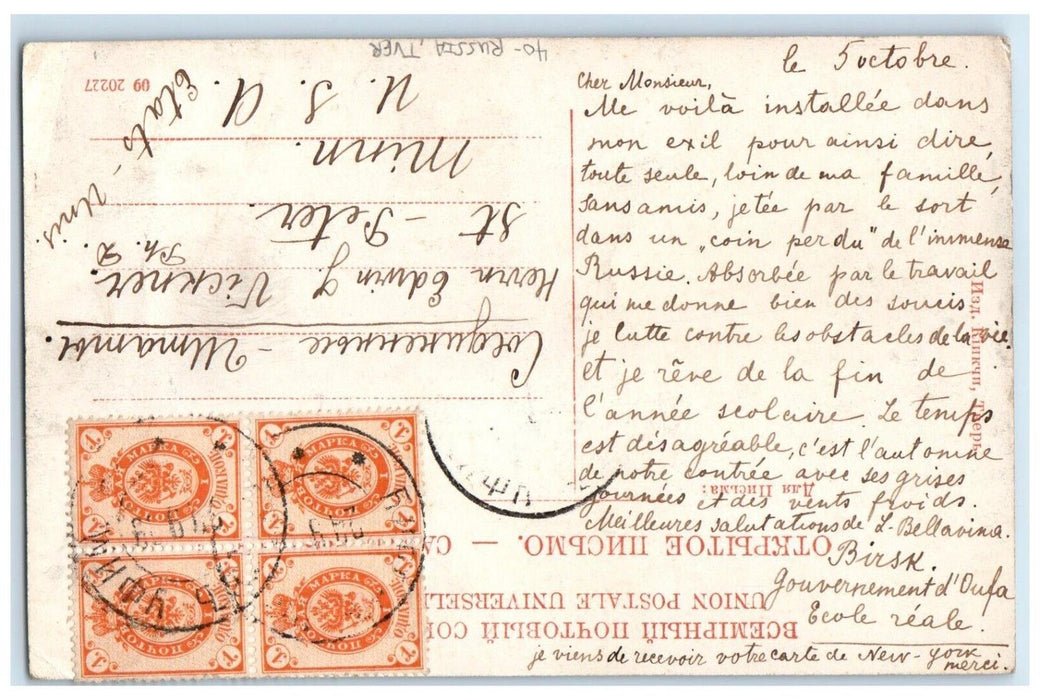 le 5 octobre.
Cher Monsieur,
Me voilà installée dans
mon exil pour ainsi dire,
toute seule, loin de ma famille,
sans amis, jetée par le sort
dans un „coin perdu" de l'immense
Russie. Absorbée par le travail
qui me donne bien des soucis
je lutte contre les obstacles de la vie
et je rêve de la fin de
l'année scolaire. Le temps
est désagréable, c'est l'automne
de notre contrée avec ses grises
journées et des vents froids.
Meilleures salutations de L. Bellavina.
Birsk.
Gouvernement d'Oufa
Ecole réale.
je viens de recevoir votre carte de New-York
merci.
40- RUSSIA, TVER
ВСЕМІРНЫЙ ПОЧТОВЫЙ СОЮ
UNION POSTALE UNIVERSELL
ОТКРЫТОЕ ПИСЬМО. — CA
Для Письма:
Изд. Тверь
Соединенные-Штаты.
Herrn Edwin J. Vickner.
Ph. D.
St-Peter.
Minn.
U. S. A.
Etats
Unis.
09 20227
МАРКА
1
МАРКА
1
МАРКА
1
МАРКА
1